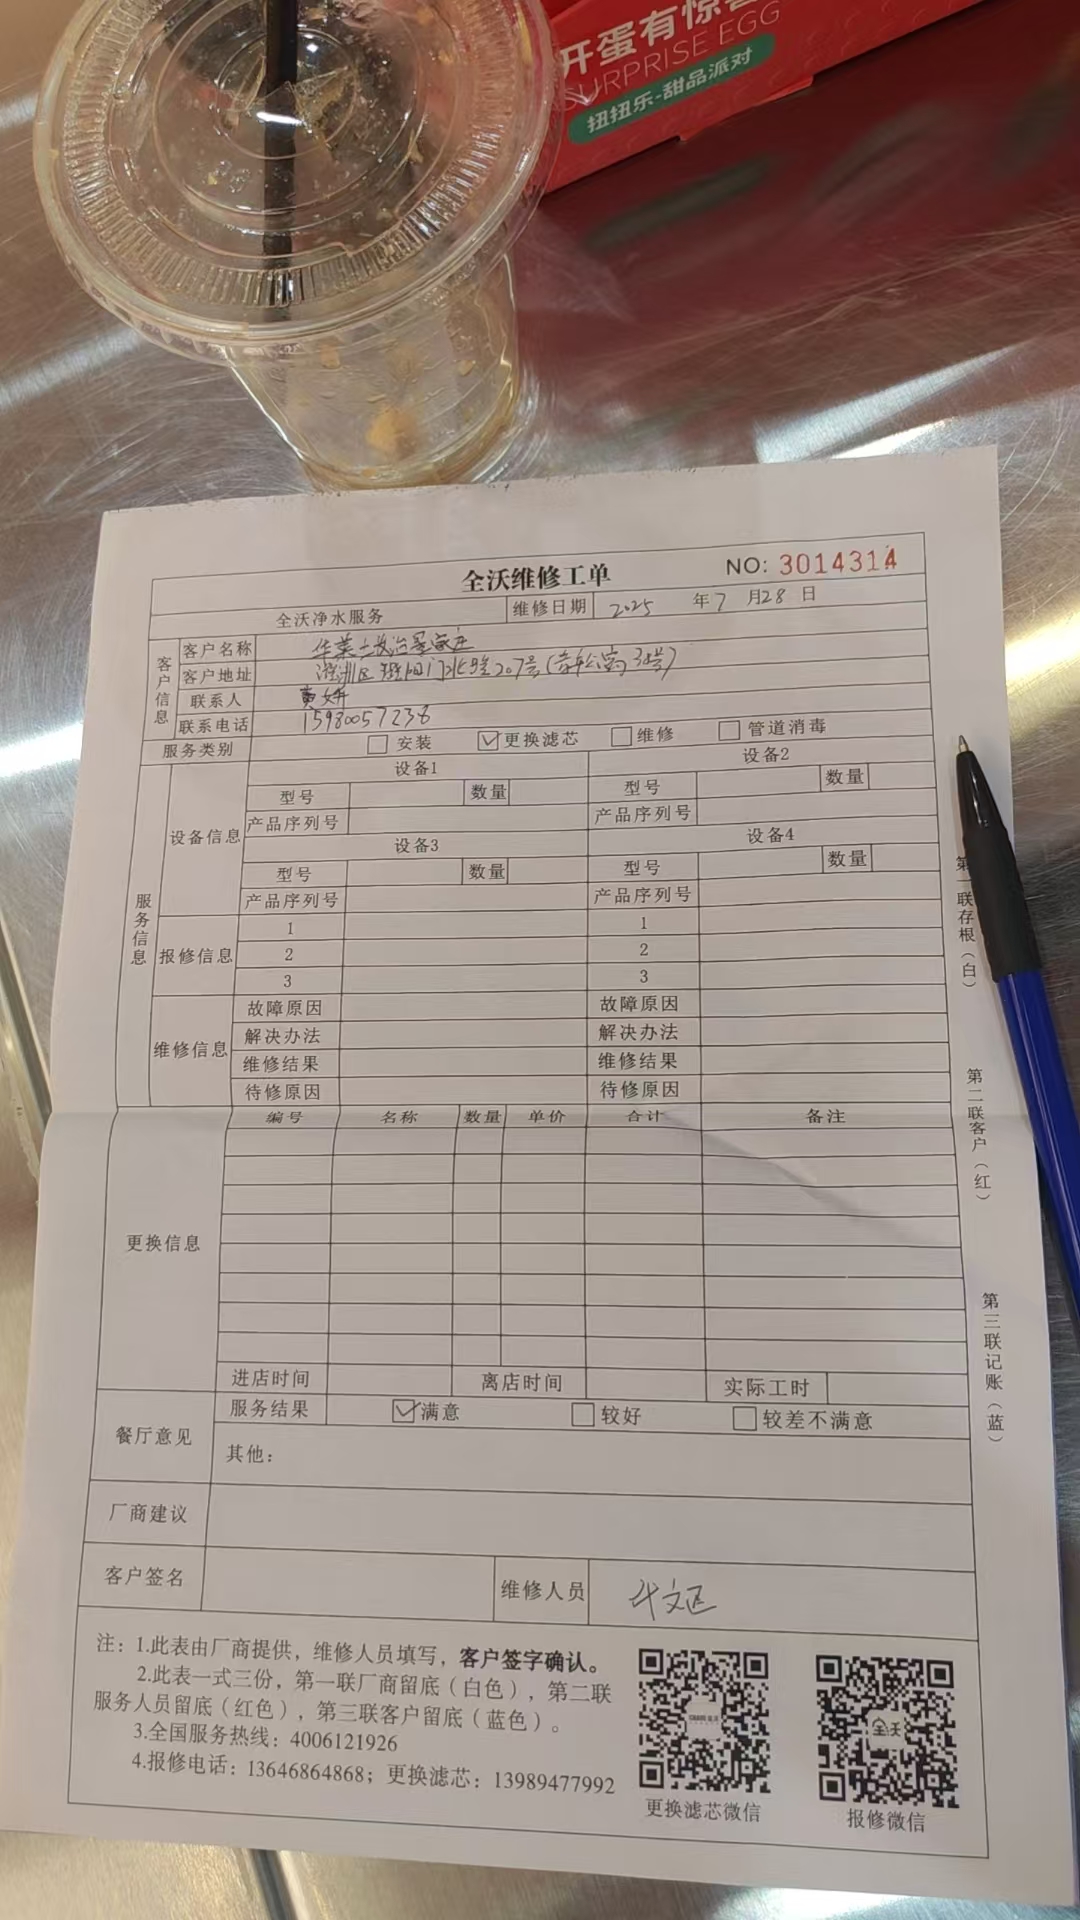 开蛋有惊喜
SURPRISE EGG
扭扭乐-甜品派对
全沃维修工单 NO: 3014314
全沃净水服务 维修日期 2025 年 7 月 28 日
客户信息
客户名称 华莱士
客户地址
联系人 黄妍
联系电话 15980057238
服务类别 安装 ☑更换滤芯 维修 管道消毒
服务信息
设备信息
设备1 设备2
型号 数量 型号 数量
产品序列号 产品序列号
设备3 设备4
型号 数量 型号 数量
产品序列号 产品序列号
报修信息
1 1
2 2
3 3
维修信息
故障原因 故障原因
解决办法 解决办法
维修结果 维修结果
待修原因 待修原因
编号 名称 数量 单价 合计 备注
更换信息
进店时间 离店时间 实际工时
餐厅意见
服务结果 ☑满意 较好 较差不满意
其他：
厂商建议
客户签名 维修人员
注：1.此表由厂商提供，维修人员填写，客户签字确认。
2.此表一式三份，第一联厂商留底（白色），第二联
服务人员留底（红色），第三联客户留底（蓝色）。
3.全国服务热线：4006121926
4.报修电话：13646864868；更换滤芯：13989477992
更换滤芯微信
全沃
报修微信
第一联存根（白）
第二联客户（红）
第三联记账（蓝）